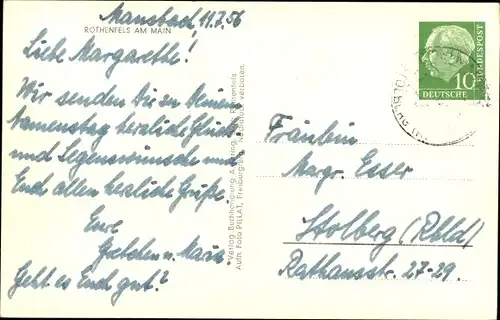 Mansbach, 11.7.56
ROTHENFELS AM MAIN
Liebe Margarethe!
Wir senden Dir zu Deinem
Namenstag herzliche Glück-
und Segenswünsche und
Euch allen herzliche Grüße.
Eure
Gretchen u. Maria
Geht es Euch gut?
Verlag Buchhandlung
Auth. Foto PILLAT, Freiburg
verboten.
DEUTSCHE
BUNDESPOST
10
Fräulein
Margr. Esser
Stolberg (Rhld)
Rathausstr. 27-29.